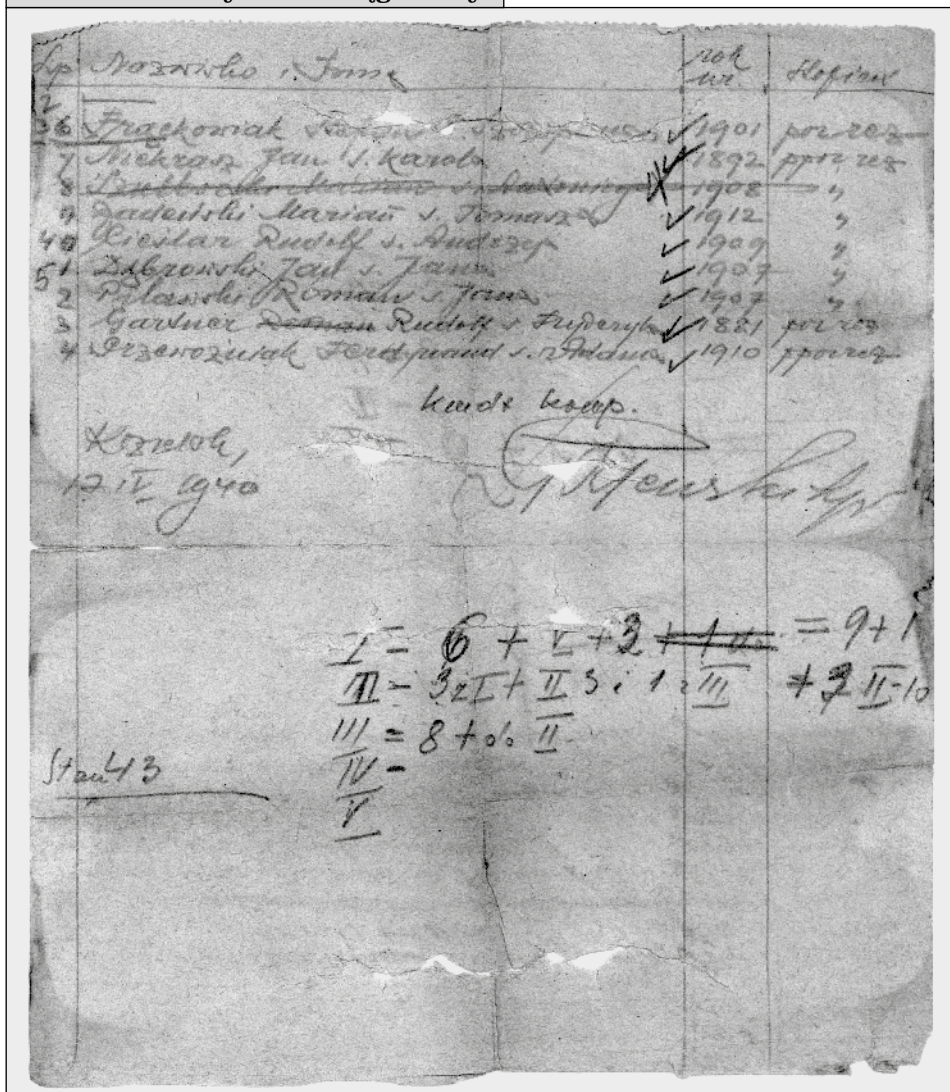 Lp Nazwisko i Imię rok ur. Stopień
2
36 Frączkowiak 1901 por rez
7 Niekrasz Jan s. Karola 1892 ppor rez
8 1908 "
9 Zadeński Marian s. Tomasza 1912 "
40 Cieślar Rudolf s. Andrzeja 1909 "
51 Dąbrowski Jan s. Jana 1907 "
2 Pylawski Roman s. Jana 1907 "
3 Gartner Roman Rudolf s Fryderyka 1881 por rez
4 Przewoźniak Ferdynand s. Adama 1910 ppor rez
kmdt komp.
Kozielsk,
17 IV 1940
I = 6 + V + 3 + 1 = 9 + 1
III = 3 z I + II 3 i 1 z III + 3 II - 10
III = 8 + do II
Stan 43
IV =
V